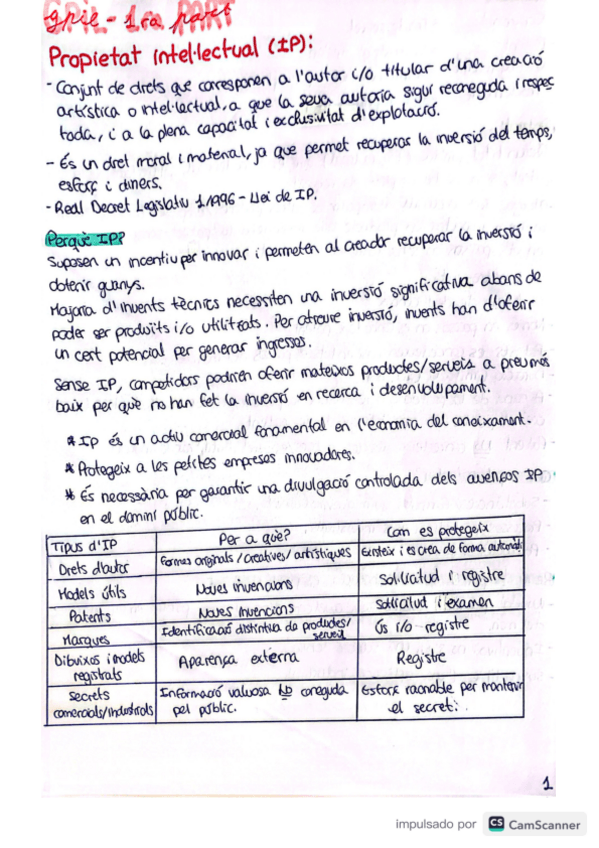 GPIE - 1ra PART
Propietat intel·lectual (IP):
- Conjunt de drets que corresponen a l'autor i/o titular d'una creació
artística o intel·lectual, a que la seva autoria sigui reconeguda i respec
tada, i a la plena capacitat i exclusivitat d'explotació.
- És un dret moral i material, ja que permet recuperar la inversió del temps,
esforç i diners.
- Real Decret Legislatiu 1/1996 - Llei de IP.
Perquè IP?
Suposen un incentiu per innovar i permeten al creador recuperar la inversió i
obtenir guanys.
Majoria d'invents tècnics necessiten una inversió significativa abans de
poder ser produïts i/o utilitzats. Per atraure inversió, invents han d'oferir
un cert potencial per generar ingressos.
Sense IP, competidors podrien oferir mateixos productes/serveis a preu més
baix per què no han fet la inversió en recerca i desenvolupament.
* IP és un actiu comercial fonamental en l'economia del coneixament.
* Protegeix a les petites empreses innovadores.
* És necessària per garantir una divulgació controlada dels avenços IP
en el domini públic.
Tipus d'IP Per a què? Com es protegeix
Drets d'autor Formes originals/creatives/artístiques Existeix i es crea de forma automàt
Models útils Noves invencions Sol·licitud i registre
Patents Noves invencions Sol·licitud i examen
Marques Identificació distintiva de productes/ serveis Ús i/o registre
Dibuixos i models Aparença externa Registre
registrats
Secrets Informació valuosa NO coneguda Esforç raonable per mantenir
comercials/industrials pel públic. el secret.
1
impulsado por CS CamScanner